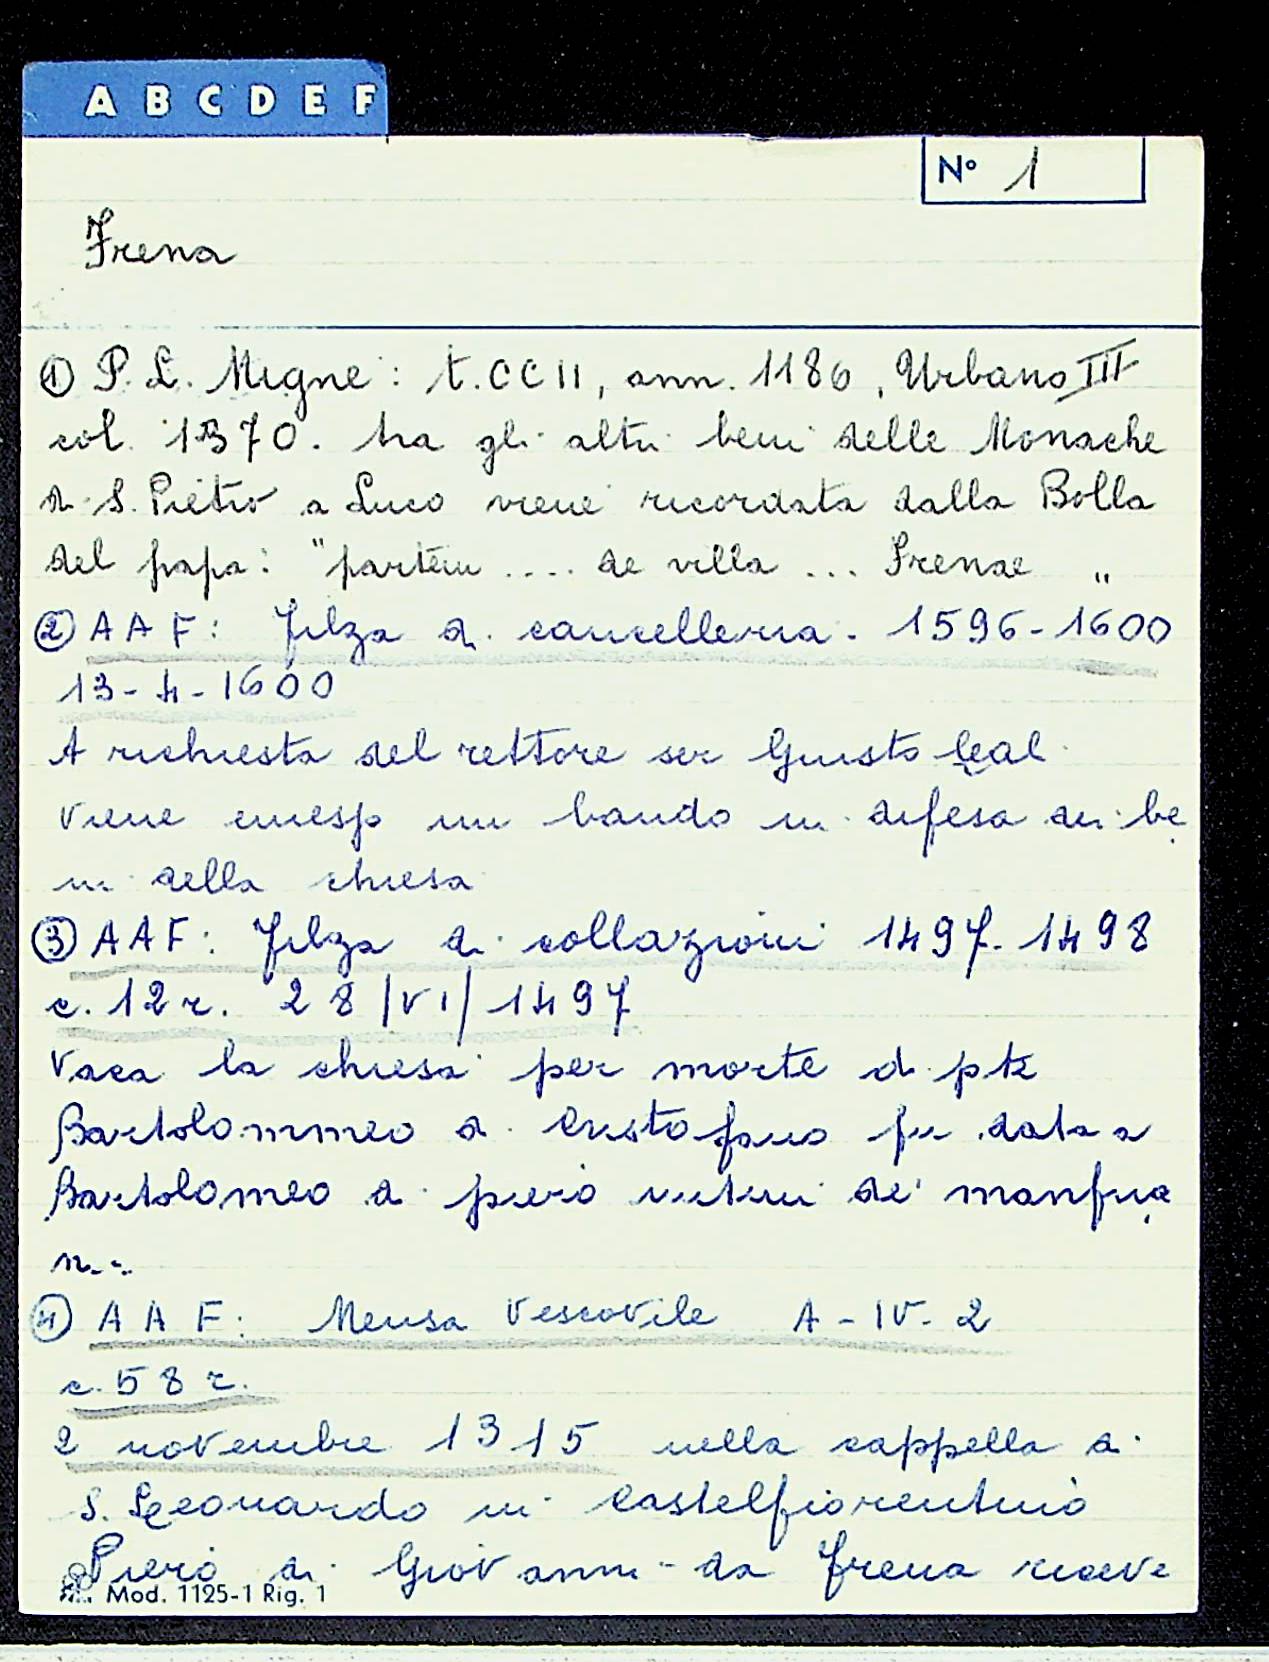 A B C D E F
Nº 1
Frena
① P. L. Migne: t. CCII, ann. 1186, Urbano III
col. 1370. tra gli altri beni delle Monache
di S. Pietro a Luco viene ricordata dalla Bolla
del papa: "partem .... de villa ... Frenae "
② AAF: filza di cancelleria. 1596-1600
13-4-1600
A richiesta del rettore ser Giusto
viene un bando in difesa dei be
ni della chiesa
③ AAF: Filza di collazioni 1497-1498
c. 12 r. 28/VI/1497
Vaca la chiesa per morte di pte
Bartolommeo di Cristofano fu data a
Bartolomeo di piero de'
n...
④ AAF: Mensa Vescovile A-IV-2
c. 58 r.
2 novembre 1315 nella cappella di
S. Leonardo in Castelfiorentino
Piero di Giovanni da Frena riceve
Mod. 1125-1 Rig. 1